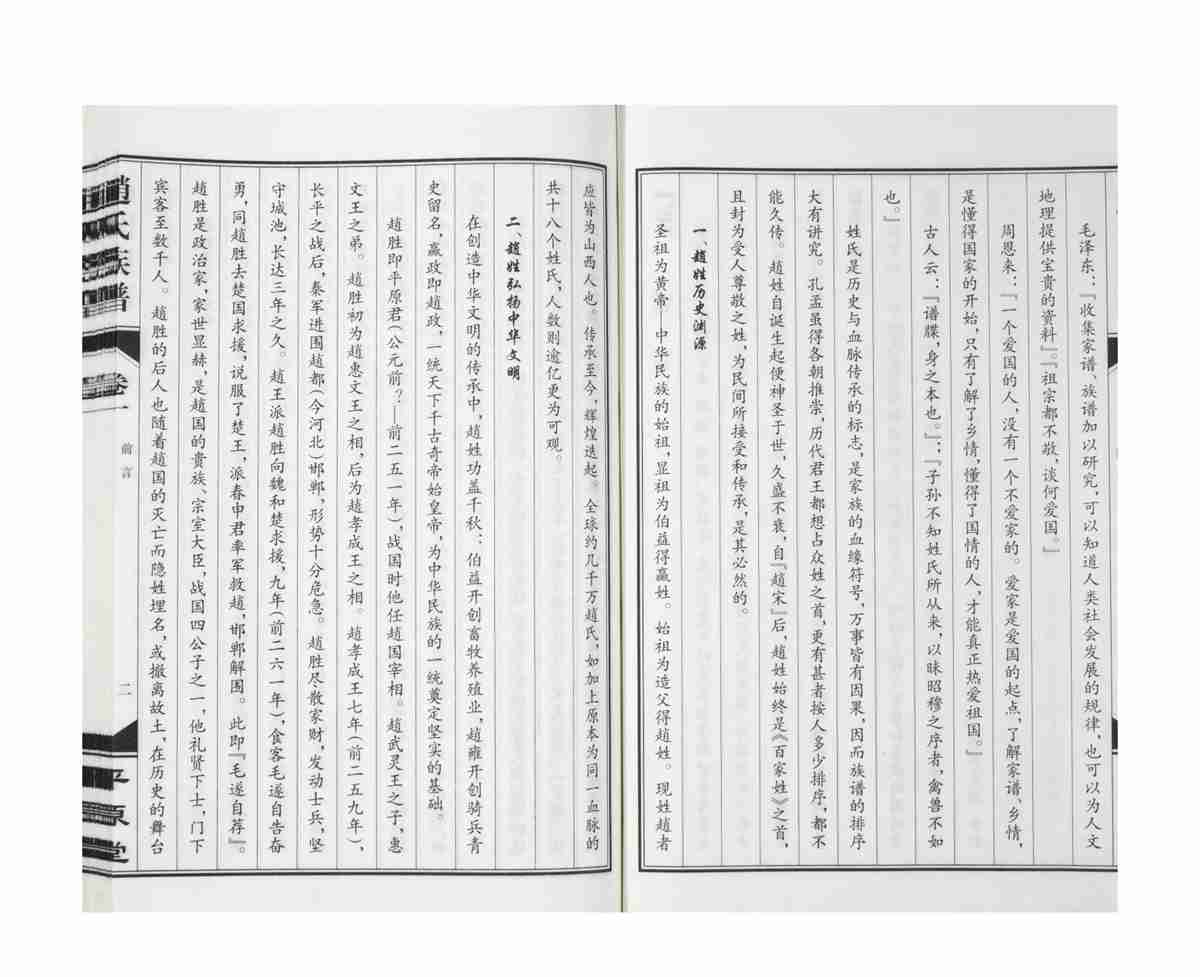 毛泽东：『收集家谱、族谱加以研究，可以知道人类社会发展的规律，也可以为人文
地理提供宝贵的资料』。『祖宗都不敬，谈何爱国。』
周恩来：『一个爱国的人，没有一个不爱家的。爱家是爱国的起点，了解家谱、乡情，
是懂得国家的开始，只有了解了乡情，懂得了国情的人，才能真正热爱祖国。』
古人云：『谱牒，身之本也。』；『子孙不知姓氏所从来，以昧昭穆之序者，禽兽不如
也。』
姓氏是历史与血脉传承的标志，是家族的血缘符号，万事皆有因果，因而族谱的排序
大有讲究。孔孟虽得各朝推崇，历代君王都想占众姓之首，更有甚者按人多少排序，都不
能久传。赵姓自诞生起便神圣于世，久盛不衰，自『趙宋』后，趙姓始终是《百家姓》之首，
且封为受人尊敬之姓，为民间所接受和传承，是其必然的。
一、趙姓历史渊源
圣祖为黄帝—中华民族的始祖，显祖为伯益得嬴姓。始祖为造父得趙姓。现姓趙者
应皆为山西人也。传承至今，辉煌迭起。全球约几千万趙氏，如加上原本为同一血脉的
共十八个姓氏，人数则逾亿更为可观。
二、趙姓弘扬中华文明
在创造中华文明的传承中，趙姓功盖千秋：伯益开创畜牧养殖业，趙雍开创骑兵青
史留名，嬴政即趙政，一统天下千古奇帝始皇帝，为中华民族的一统奠定坚实的基础。
趙胜即平原君（公元前？—前二五一年），战国时他任趙国宰相。趙武灵王之子，惠
文王之弟。趙胜初为趙惠文王之相，后为趙孝成王之相。趙孝成王七年（前二五九年），
长平之战后，秦军进围趙都（今河北）邯郸，形势十分危急。趙胜尽散家财，发动士兵，坚
守城池，长达三年之久。趙王派趙胜向魏和楚求援，九年（前二六一年），食客毛遂自告奋
勇，同趙胜去楚国求援，说服了楚王，派春申君率军救趙，邯郸解围。此即『毛遂自荐』。
趙胜是政治家，家世显赫，是趙国的贵族、宗室大臣，战国四公子之一，他礼贤下士，门下
宾客至数千人。趙胜的后人也随着趙国的灭亡而隐姓埋名，或撤离故土，在历史的舞台
趙氏族谱
卷一
前言
二
平原堂